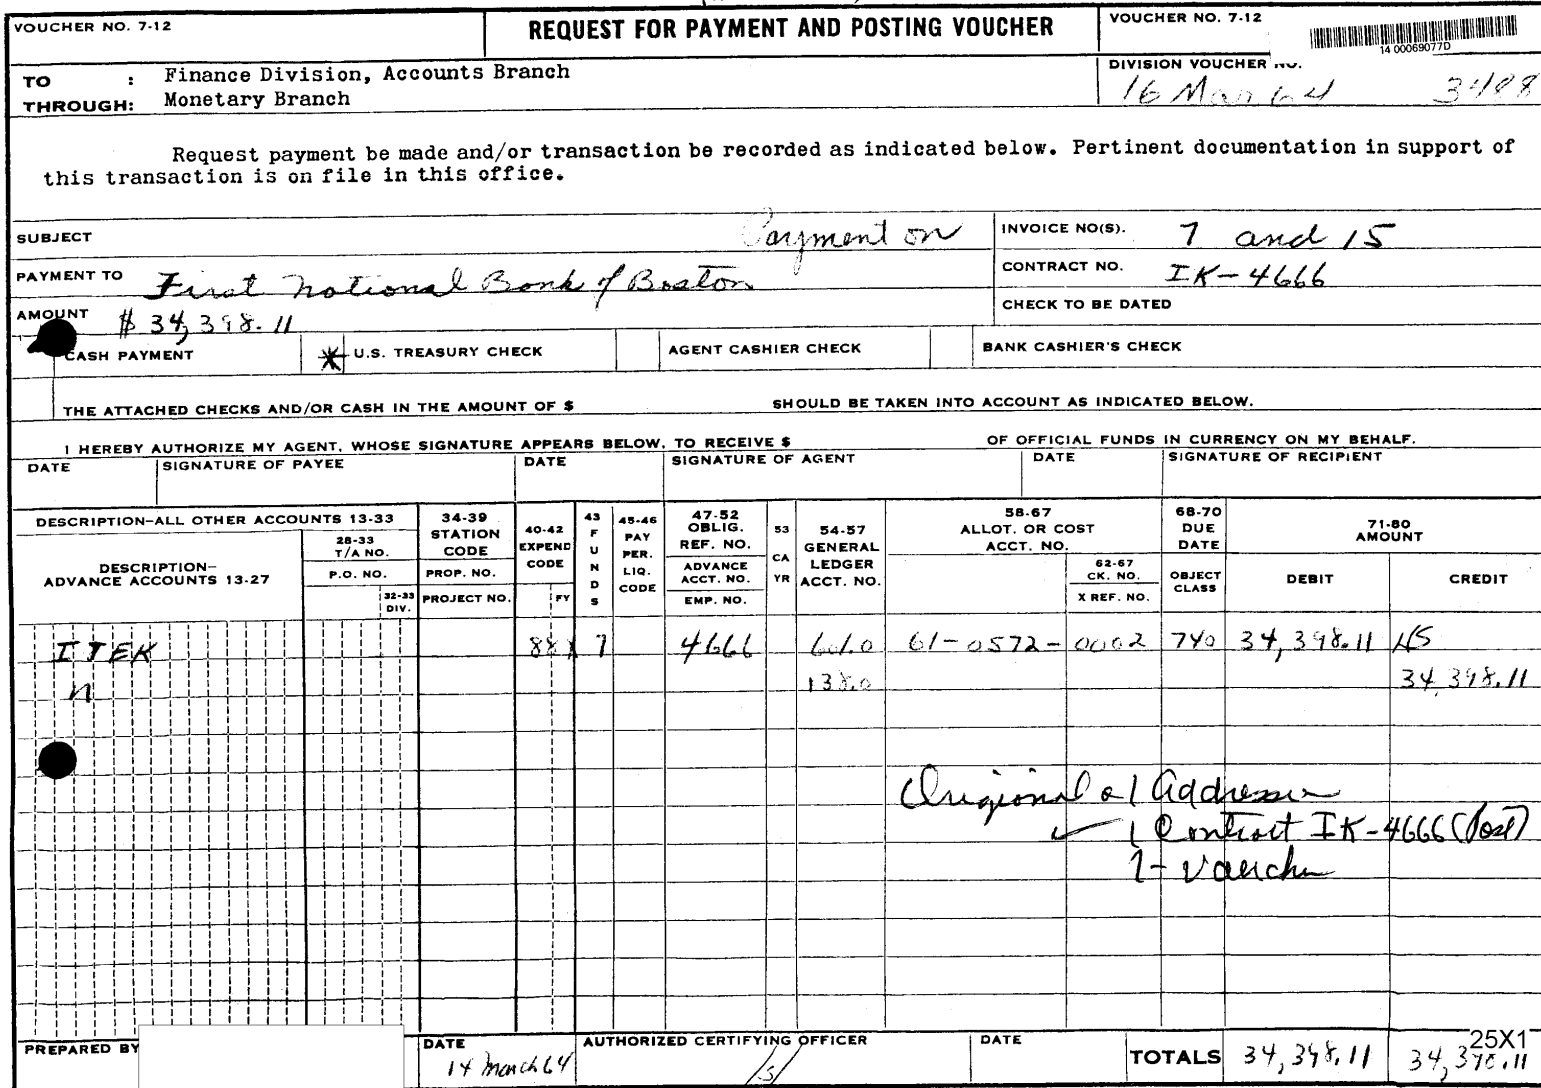 VOUCHER NO. 7-12
REQUEST FOR PAYMENT AND POSTING VOUCHER
VOUCHER NO. 7-12
14 00069077D
TO : Finance Division, Accounts Branch
THROUGH: Monetary Branch
DIVISION VOUCHER NO.
16 Mar 64 3488
Request payment be made and/or transaction be recorded as indicated below. Pertinent documentation in support of
this transaction is on file in this office.
SUBJECT Payment on
INVOICE NO(S). 7 and 15
PAYMENT TO First National Bank of Boston
CONTRACT NO. IK-4666
AMOUNT $ 34,398.11
CHECK TO BE DATED
CASH PAYMENT U.S. TREASURY CHECK AGENT CASHIER CHECK BANK CASHIER'S CHECK
THE ATTACHED CHECKS AND/OR CASH IN THE AMOUNT OF $ SHOULD BE TAKEN INTO ACCOUNT AS INDICATED BELOW.
I HEREBY AUTHORIZE MY AGENT, WHOSE SIGNATURE APPEARS BELOW, TO RECEIVE $ OF OFFICIAL FUNDS IN CURRENCY ON MY BEHALF.
DATE SIGNATURE OF PAYEE DATE SIGNATURE OF AGENT DATE SIGNATURE OF RECIPIENT
DESCRIPTION-ALL OTHER ACCOUNTS 13-33
DESCRIPTION-
ADVANCE ACCOUNTS 13-27
28-33
T/A NO.
P.O. NO.
32-33
DIV.
34-39
STATION
CODE
PROP. NO.
PROJECT NO.
40-42
EXPEND
CODE
FY
43
FUNDS
45-46
PAY
PER.
LIQ.
CODE
47-52
OBLIG.
REF. NO.
ADVANCE
ACCT. NO.
EMP. NO.
53
CA
YR
54-57
GENERAL
LEDGER
ACCT. NO.
58-67
ALLOT. OR COST
ACCT. NO.
62-67
CK. NO.
X REF. NO.
68-70
DUE
DATE
OBJECT
CLASS
71-80
AMOUNT
DEBIT CREDIT
ITEK 7 4666 601.0 61-0572-0002 740 34,398.11
" 138.0 34,398.11
Origional & 1 Addressee
✓ 1 Contract IK-4666 (Post)
1- Voucher
PREPARED BY
DATE
14 March 64
AUTHORIZED CERTIFYING OFFICER
/s/
DATE
25X1
TOTALS 34,398.11 34,398.11